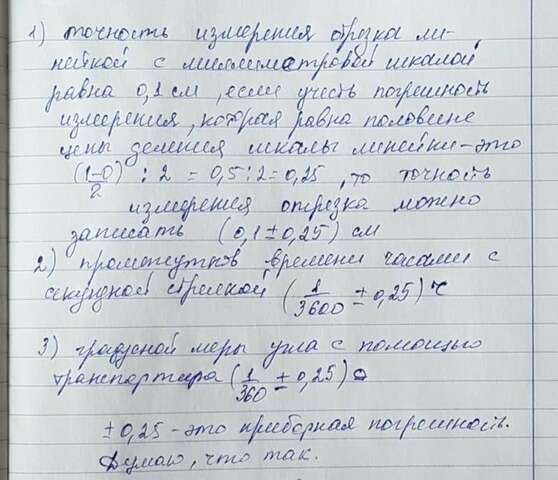 1) точность измерения отрезка ли-
нейкой с миллиметровой шкалой
равна 0,1 см, если учесть погрешность
измерения, которая равна половине
цены деления шкалы линейки-это
(1-0)/2 : 2 = 0,5:2=0,25, то точность
измерения отрезка можно
записать (0,1 ± 0,25) см
2) промежутков времени часами с
секундной стрелкой (1/3600 ± 0,25) ч
3) градусной меры угла с помощью
транспортира (1/360 ± 0,25)°
± 0,25 - это приборная погрешность.
Думаю, что так.